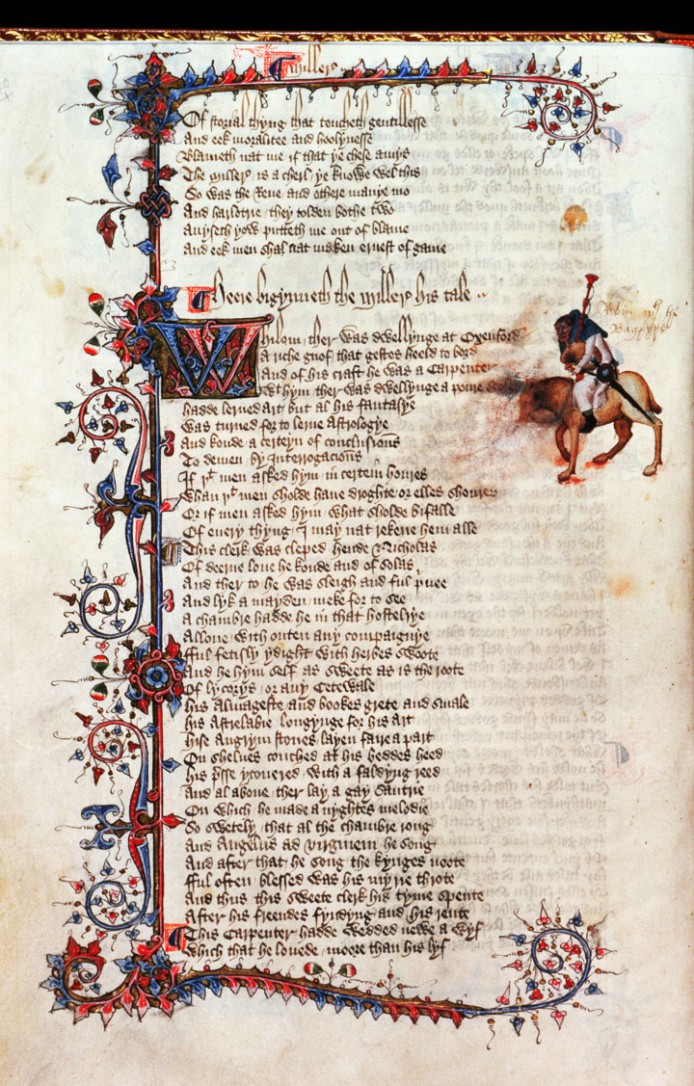 Miller
Of storial thyng that toucheth gentillesse
And eek moralitee and hoolynesse
Blameth nat me if that ye chese amys
The Millere is a cherl ye knowe wel this
So was the Reve and othere manye mo
And harlotrie they tolden bothe two
Avyseth yow putteth me out of blame
And eek men shal nat maken ernest of game
Heere bigynneth the Millere his tale
Whilom ther was dwellynge at Oxenford
A riche gnof that gestes heeld to bord
And of his craft he was a Carpenter
With hym ther was dwellynge a poure
hadde lerned Art but al his fantasye
Was turned for to lerne Astrologye
And koude a certeyn of conclusions
To demen by Interrogacions
If þt men asked hym in certein houres
Whan þt men sholde have droghte or elles shoures
Or if men asked hym what sholde bifalle
Of every thyng I may nat rekene hem alle
This clerk was cleped hende Nicholas
Of deerne love he koude and of solas
And ther to he was sleigh and ful pryvee
And lyk a mayden meke for to see
A chambre hadde he in that hostelrye
Allone with outen any compaignye
fful fetisly ydight with herbes swoote
And he hym self as sweete as is the roote
Of lycorys or any Cetewale
his Almageste and bookes grete and smale
his Astrelabie longynge for his Art
hise Augrym stones layen faire a part
On shelves couched at his beddes heed
his presse ycovered with a faldyng reed
And al above ther lay a gay Sautrie
On which he made a nyghtes melodie
So swetely that al the chambre rong
And Angelus ad virginem he song
And after that he song the kynges noote
fful often blessed was his myrie throte
And thus this sweete clerk his tyme spente
After his freendes fyndyng and his rente
This Carpenter hadde wedded newe a wyf
Which that he lovede moore than his lyf